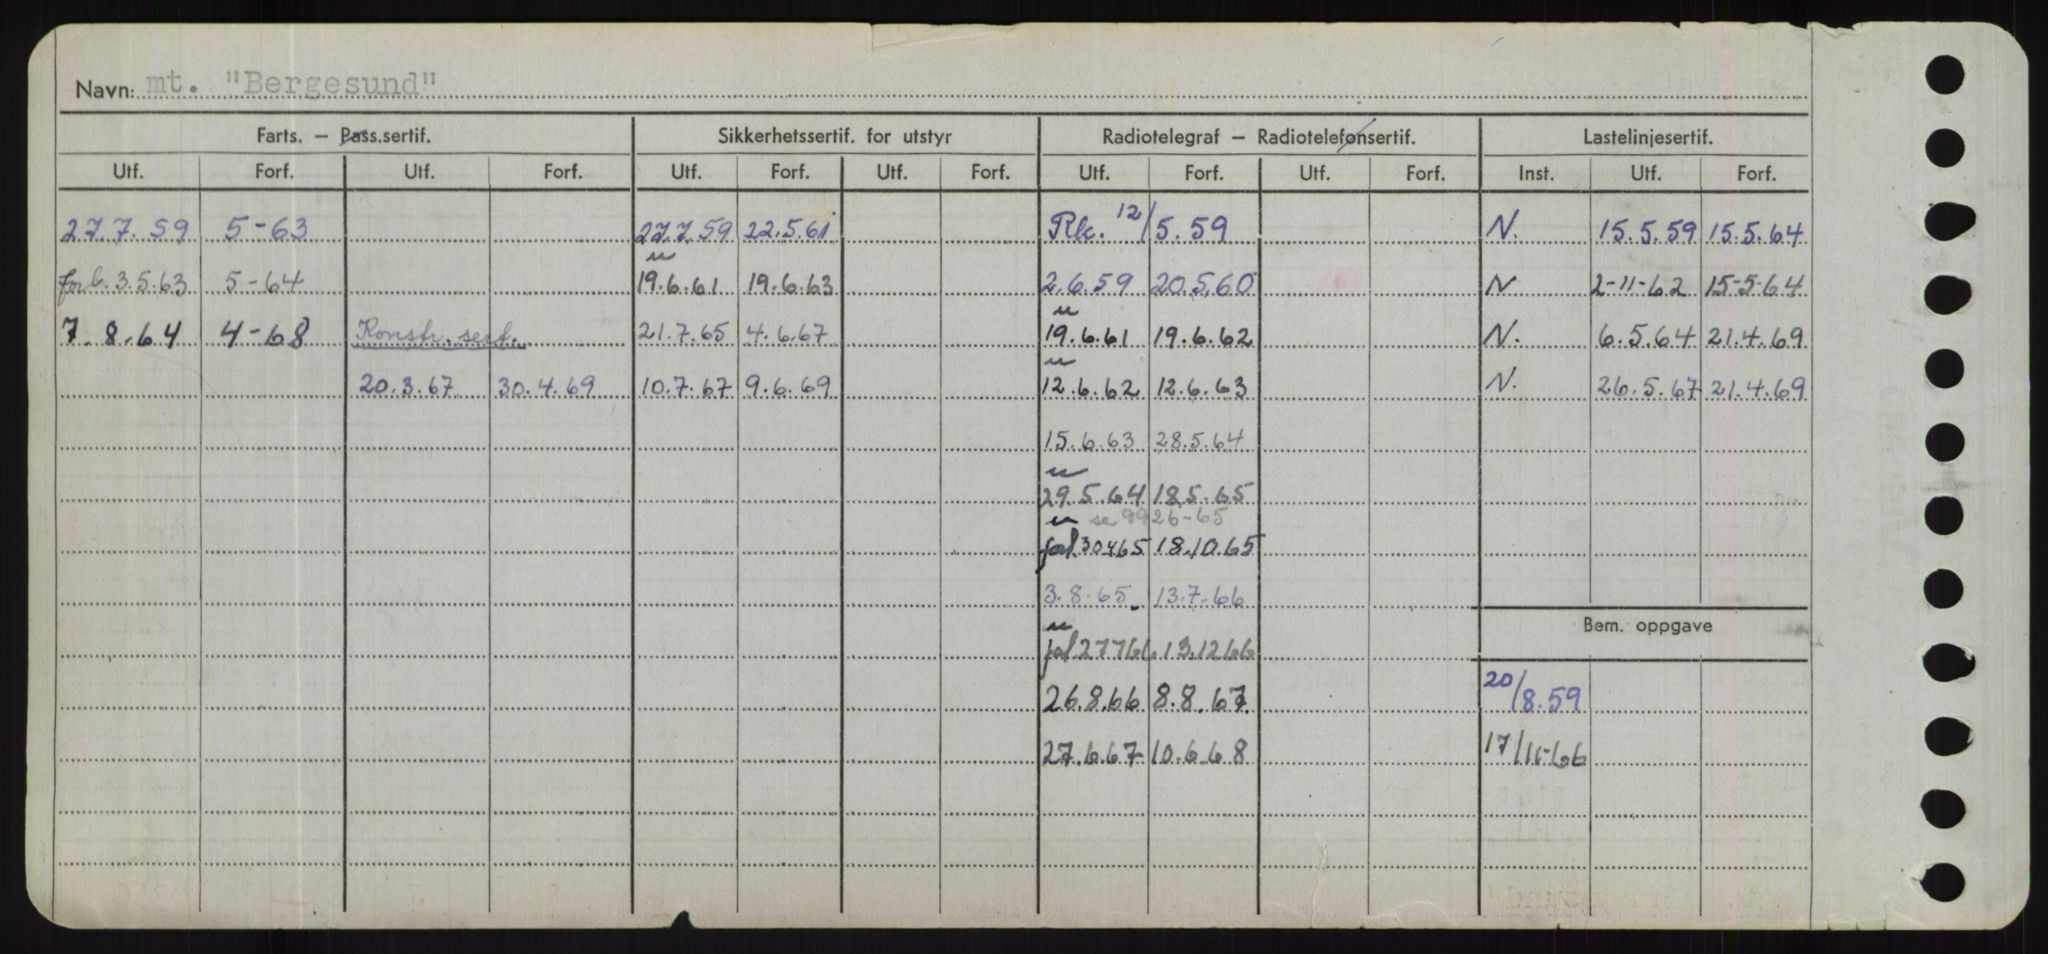 Navn: mt. "Bergesund"
Farts. — Pass.sertif. Sikkerhetssertif. for utstyr Radiotelegraf — Radiotelefonsertif. Lastelinjesertif.
Utf. Forf. Utf. Forf. Utf. Forf. Utf. Forf. Utf. Forf. Utf. Forf. Inst. Utf. Forf.
27.7.59 5-63 27.7.59 22.5.61 Rk. 12/5.59 N. 15.5.59 15.5.64
forl. 3.5.63 5-64 19.6.61 19.6.63 2.6.59 20.5.60 N 2-11-62 15-5-64
7.8.64 4-68 Konstr. sert. 21.7.65 4.6.67 19.6.61 19.6.62 N. 6.5.64 21.4.69
20.3.67 30.4.69 10.7.67 9.6.69 12.6.62 12.6.63 N. 26.5.67 21.4.69
15.6.63 28.5.64
29.5.64 18.5.65
se 9926-65
forl 30465 18.10.65
3.8.65 13.7.66
Bem. oppgave
forl 27766 13.1266
26.8.66 8.8.67 20/8.59
27.6.67 10.6.68 17/11-66